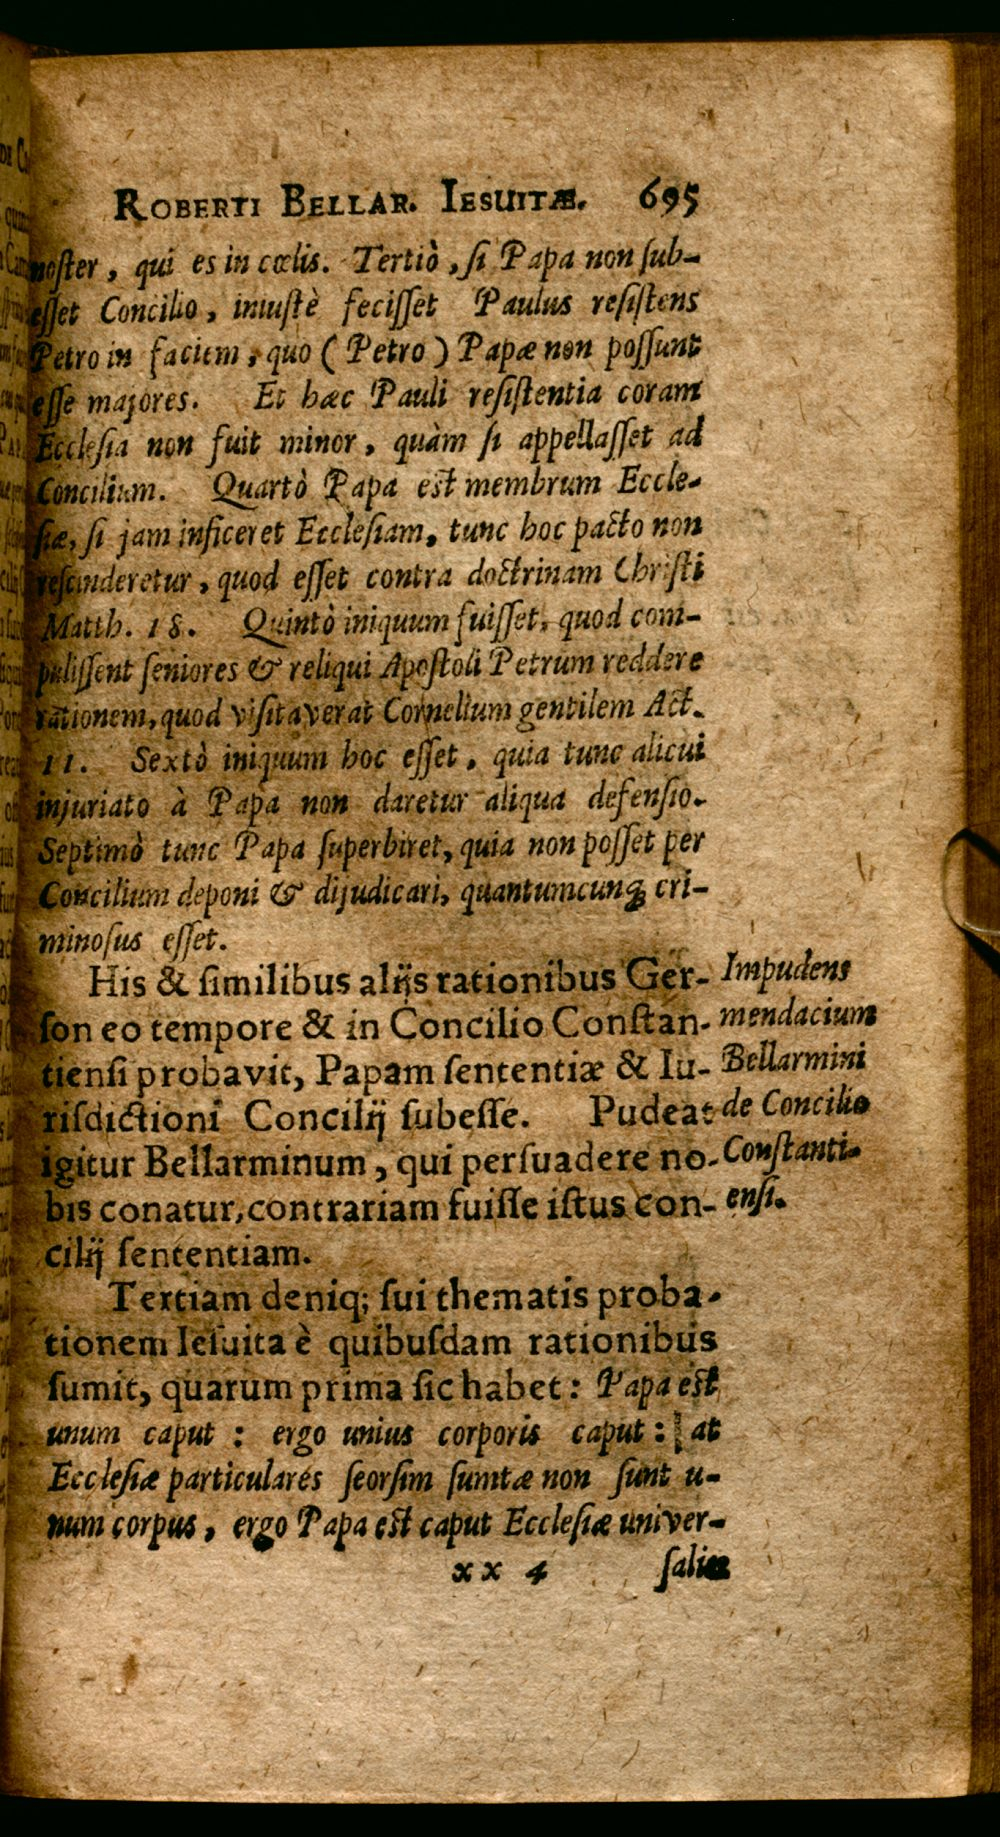 ROBERTI BELLAR. IESUITÆ. 695
noster, qui es in cœlis. Tertiò, si Papa non sub-
esset Concilio, iniustè fecisset Paulus resistens
Petro in faciem, quo (Petro) Papæ non possunt
esse majores. Et hæc Pauli resistentia coram
Ecclesia non fuit minor, quàm si appellasset ad
Concilium. Quartò Papa est membrum Eccle-
siæ, si jam inficeret Ecclesiam, tunc hoc pacto non
rescinderetur, quod esset contra doctrinam Christi
Matth. 18. Quintò iniquum fuisset, quod com-
pulissent seniores & reliqui Apostoli Petrum reddere
rationem, quod visitaverat Cornelium gentilem Act.
11. Sextò iniquum hoc esset, quia tunc alicui
injuriato à Papa non daretur aliqua defensio.
Septimò tunc Papa superbiret, quia non posset per
Concilium deponi & dijudicari, quantumcunq; cri-
minosus esset.
His & similibus alijs rationibus Ger-
son eo tempore & in Concilio Constan-
tiensi probavit, Papam sententiæ & Iu-
risdictioni Concilij subesse. Pudeat
igitur Bellarminum, qui persuadere no-
bis conatur, contrariam fuisse istus con-
cilij sententiam.
Impudens
mendacium
Bellarmini
de Concilio
Constanti-
ensi.
Tertiam deniq; sui thematis proba-
tionem Iesuita è quibusdam rationibus
sumit, quarum prima sic habet: Papa est
unum caput : ergo unius corporis caput : at
Ecclesiæ particulares seorsim sumtæ non sunt u-
num corpus, ergo Papa est caput Ecclesiæ univer-
xx 4 salis